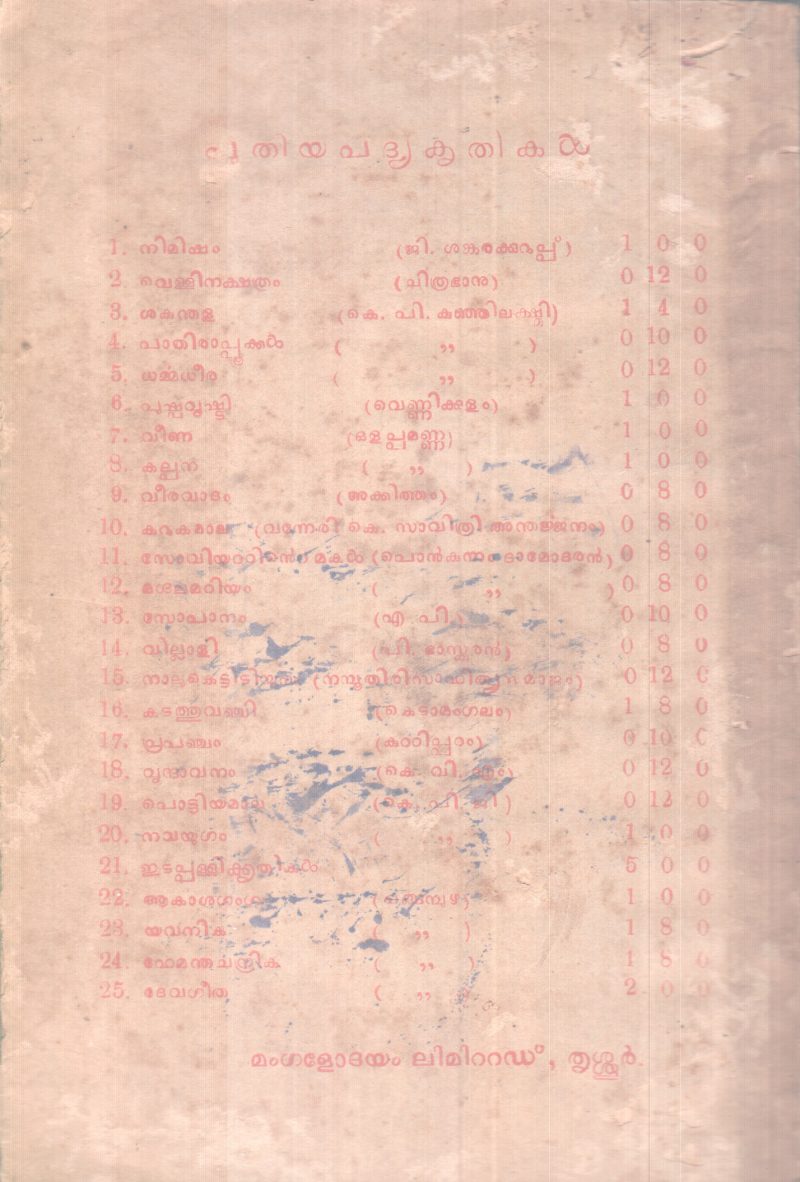 പുതിയപദ്യകൃതികൾ
1. നിമിഷം (ജി. ശങ്കരക്കുറുപ്പ്) 1 0 0
2. വെള്ളിനക്ഷത്രം (ചിത്രഭാനു) 0 12 0
3. ശകുന്തള (കെ. പി. കുഞ്ഞിലക്ഷ്മി) 1 4 0
4. പാതിരാപ്പൂക്കൾ ( ,, ) 0 10 0
5. ധർമ്മധീര ( ,, ) 0 12 0
6. പുഷ്പവൃഷ്ടി (വെണ്ണിക്കുളം) 1 0 0
7. വീണ (ഒളപ്പമണ്ണ) 1 0 0
8. കല്പന ( ,, ) 1 0 0
9. വീരവാദം (അക്കിത്തം) 0 8 0
10. കറുകമാല (വന്നേരി കെ. സാവിത്രി അന്തർജ്ജനം) 0 8 0
11. സോവിയററിന്റെ മകൾ (പൊൻകുന്നം ദാമോദരൻ) 0 8 0
12. ( ,, ) 0 8 0
13. സോപാനം (എ പി.) 0 10 0
14. വില്ലാളി (പി. ഭാസ്കരൻ) 0 8 0
15. (നമ്പൂതിരിസാഹിത്യസമാജം) 0 12 0
16. കടത്തുവഞ്ചി (കെടാമംഗലം) 1 8 0
17. പ്രപഞ്ചം (കുററിപ്പുറം) 0 10 0
18. വൃന്ദാവനം (കെ. വി. എം) 0 12 0
19. പൊട്ടിയമാല (കെ. പി. ജി) 0 12 0
20. നവയുഗം ( ,, ) 1 0 0
21. ഇടപ്പള്ളിക്കൃതികൾ 5 0 0
22. ആകാശഗംഗ (ചങ്ങമ്പുഴ) 1 0 0
23. യവനിക ( ,, ) 1 8 0
24. ഹേമന്തചന്ദ്രിക ( ,, ) 1 8 0
25. ദേവഗീത ( ,, ) 2 0 0
മംഗളോദയം ലിമിററഡ്, തൃശ്ശൂർ.